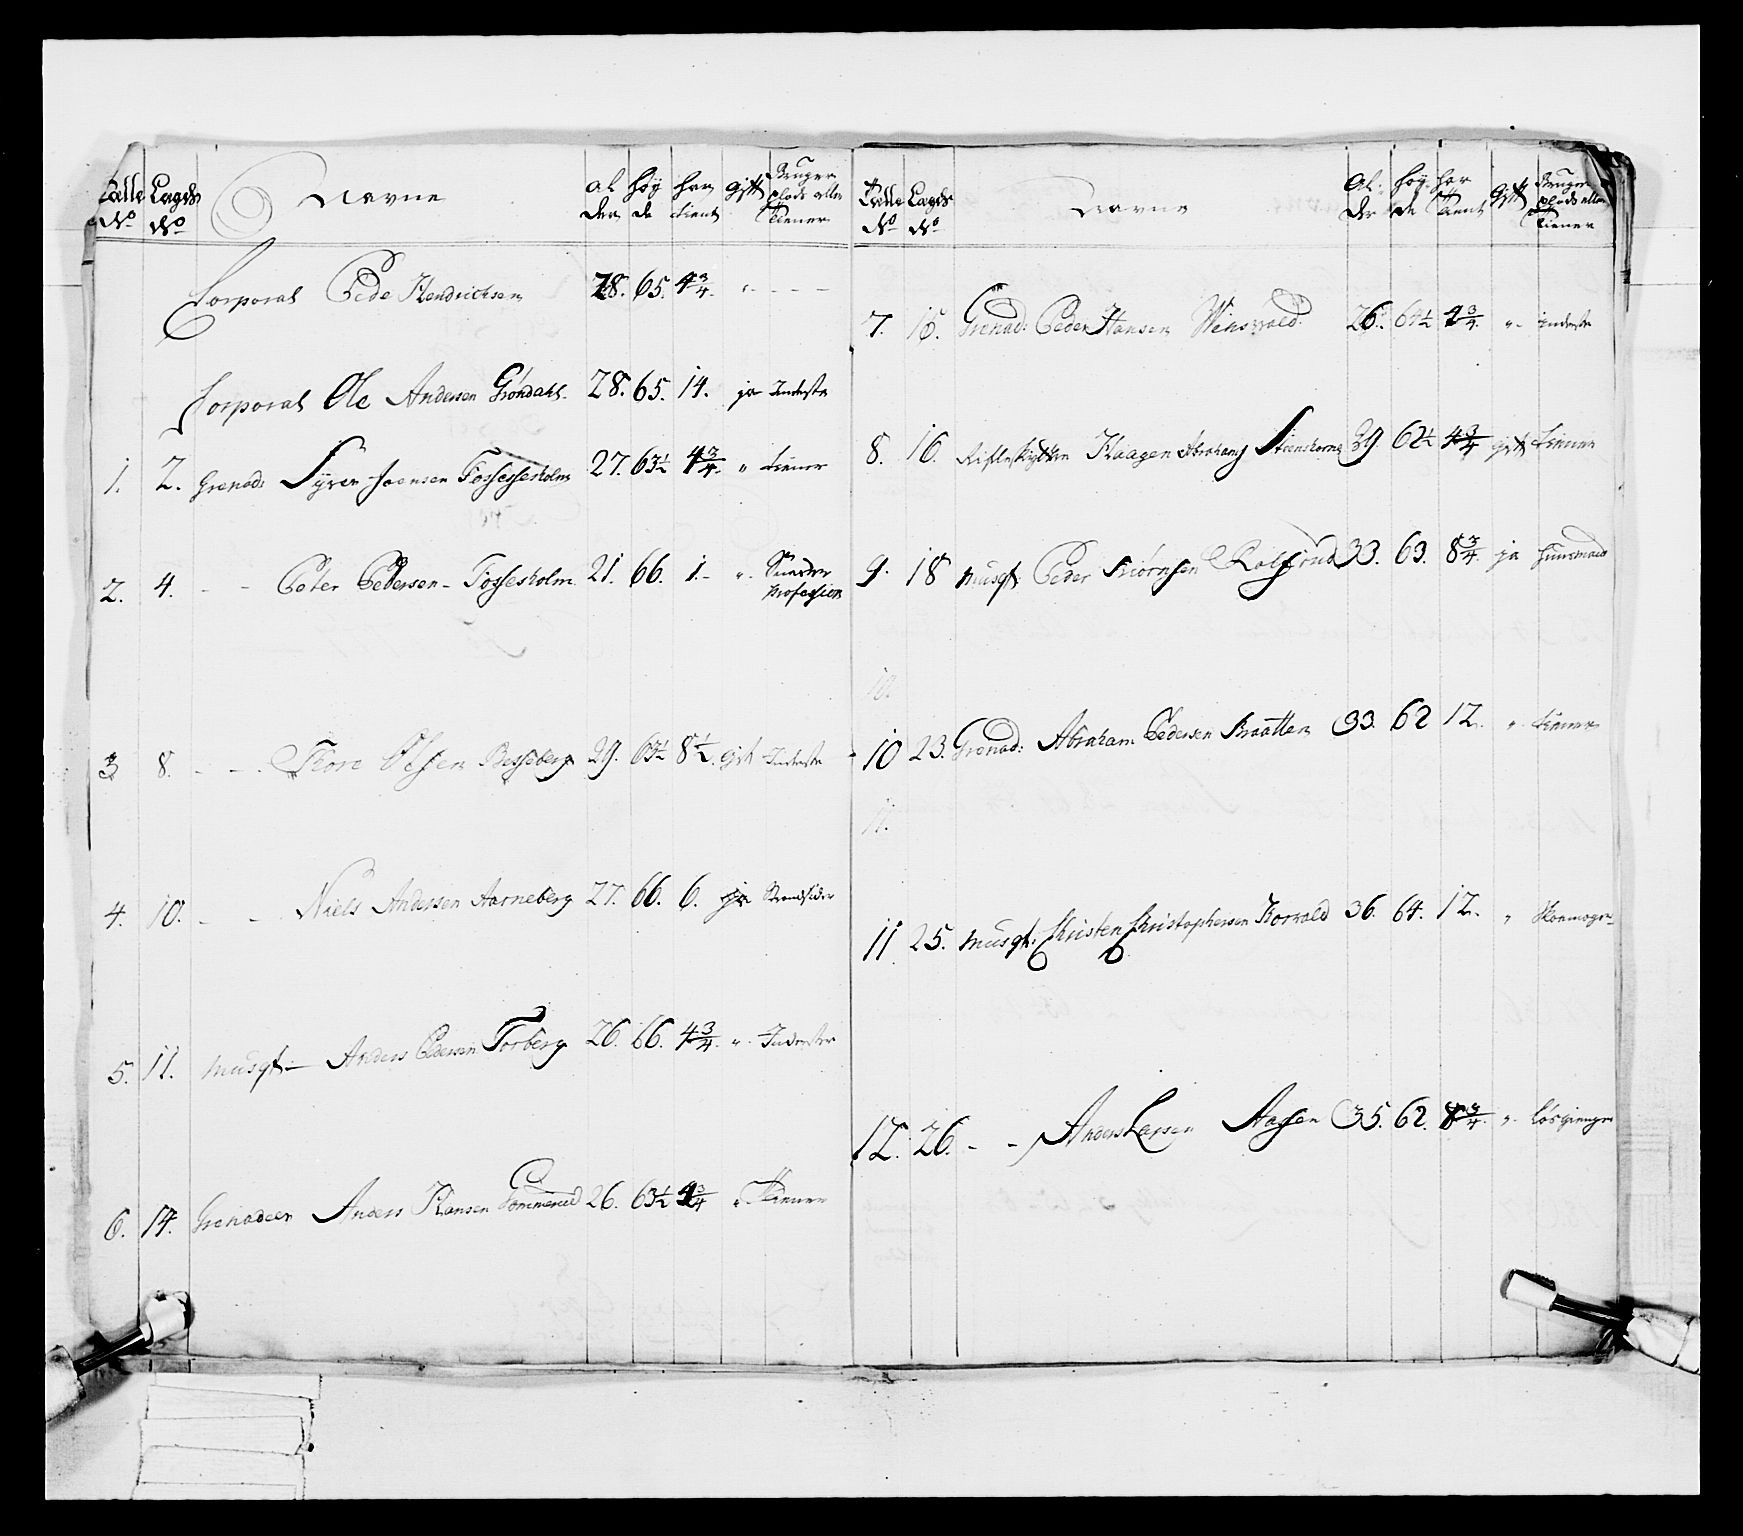 Talle No Lægds No Navne Al der Høy de har tient gift Bruger plads eller tiener
Corporal Peder Hendrichsen 28. 65. 4 3/4. " - - -
Corporal Ole Andersen Grøndahl. 28. 65. 14. ja Inderste
1. 2. Grenad: Syver Joensen Fossesholm 27. 63 1/2 4 3/4. " tiener
2. 4. - - Peter Pedersen - Fossesholm 21. 66. 1. - " Snedker Profession
3 8. - - Thore Olsen Besseberg 29. 63 1/2 8 1/2. gift Inderste
4. 10. - - Niels Andersen Aarneberg 27. 66. 6. ja Strandsider
5. 11. Musqt: - Anders Pedersen Torberg 26. 66. 4 3/4. " Inderster
6. 14. Grenadeer Anders Hansen Gommerud 26. 63 1/2 4 3/4 " Tiener
Talle No Lægds No Navne Al: der Høy: de har tient gift Bruger plads eller tiener
7. 15. Grenad: Peder Hansen 26. 64 1/2 4 3/4. " - Inderste
8. 16. Haagen Abrahams 39 62 1/2 4 3/4 gift tiener
9. 18 Musqt: Peder Rolfsrud 33. 63. 8 3/4. ja Huusmand
10.
10 23. Grenad: Abraham Pedersen Braatten 33. 62 12. " - tiener
11.
11. 25. Musqt: Christen Christophersen Korvald 36. 64. 12. "
12. 26. - - Anders Larsen Aasen 35. 62. 8 3/4. " - løsgienger